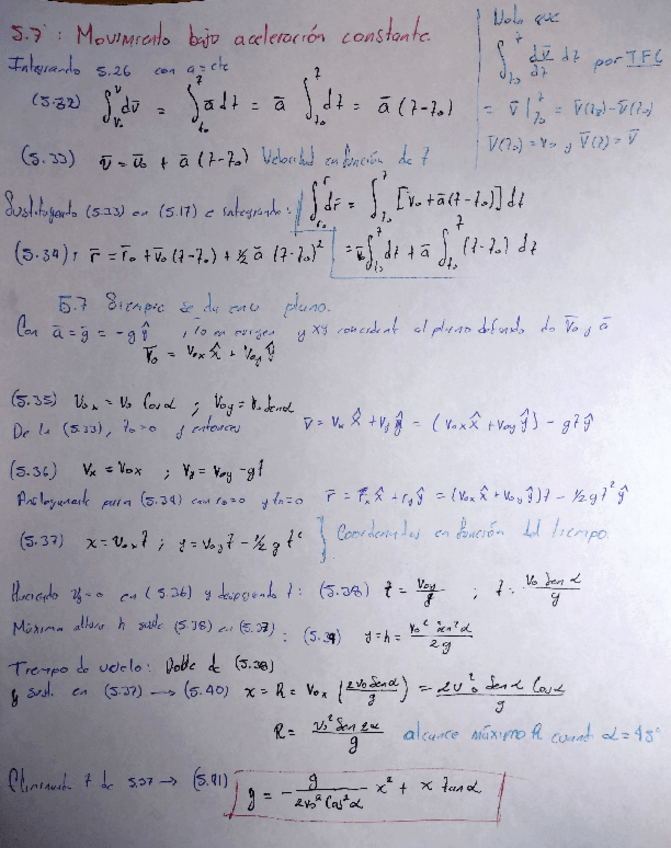 5.7: Movimiento bajo aceleración constante.
Nota que
∫_{t₀}^{t} dv̄/dt dt por TFC
= v̄ |_{t₀}^{t} = v̄(t₂)-v̄(t₀)
v̄(t₀) = v₀ y v̄(t) = v̄
Integrando 5.26 con a = cte
(5.32) ∫_{v₀}^{v} dv̄ = ∫_{t₀}^{t} ā dt = ā ∫_{t₀}^{t} dt = ā (t-t₀)
(5.33) v̄ = v̄₀ + ā (t-t₀) Velocidad en función de t
Sustituyendo (5.33) en (5.17) e integrando: ∫_{r₀}^{r} dr̄ = ∫_{t₀}^{t} [v̄₀ + ā(t-t₀)] dt
(5.34): r̄ = r̄₀ + v̄₀ (t-t₀) + ½ ā (t-t₀)² = v̄₀ ∫_{t₀}^{t} dt + ā ∫_{t₀}^{t} (t-t₀) dt
5.7 Siempre se da en un plano.
Con ā = ḡ = -g ŷ , r₀ en origen y xy coincident al plano definido do v̄₀ y ā
v̄₀ = v₀ₓ x̂ + v₀ᵧ ŷ
(5.35) v₀ₓ = v₀ Cos α ; v₀ᵧ = v₀ Sen α
De la (5.33), t₀=0 y entonces v̄ = vₓ x̂ + vᵧ ŷ = (v₀ₓ x̂ + v₀ᵧ ŷ) - gt ŷ
(5.36) vₓ = v₀ₓ ; vᵧ = v₀ᵧ - gt
Análogamente para (5.34) con r₀=0 y t₀=0 r̄ = rₓ x̂ + rᵧ ŷ = (v₀ₓ x̂ + v₀ᵧ ŷ) t - ½ g t² ŷ
(5.37) x = v₀ₓ t ; y = v₀ᵧ t - ½ g t² } Coordenadas en función del tiempo.
Haciendo vᵧ=0 en (5.36) y despejando t: (5.38) t = v₀ᵧ/g ; t = v₀ Sen α/g
Máxima altura h sust (5.38) en (5.37): (5.39) y = h = v₀² sen²α/2g
Tiempo de vuelo: Doble de (5.38)
y sust. en (5.37) → (5.40) x = R = v₀ₓ (2v₀ Sen α/g) = 2v₀² Sen α Cos α/g
R = v₀² Sen 2α/g alcance máximo R cuand α = 45°
Eliminando t de 5.37 → (5.41) y = - g/(2v₀² Cos² α) x² + x tan α